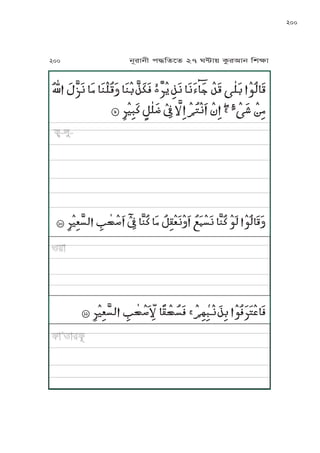 ২০০
২০০ নূরানী পদ্ধতিতে ২৭ ঘণ্টায় কুরআন শিক্ষা
قَالُوْا بَلٰى قَدْ جَآءَنَا نَذِيْرٌ ۙ۬ فَكَذَّبْنَا وَقُلْنَا مَا نَزَّلَ اللّٰهُ
مِنْ شَىْءٍ ۖۚ اِنْ اَنْتُمْ اِلَّا فِىْ ضَلٰلٍ كَبِيْرٍ ۞
ক্ব-লূ-
وَقَالُوْا لَوْ كُنَّا نَسْمَعُ اَوْ نَعْقِلُ مَا كُنَّا فِىْۤ اَصْحٰبِ السَّعِيْرِ ۞
ওয়া
فَاعْتَرَفُوْا بِذَنْۢبِهِمْ ۚ فَسُحْقًا لِّاَصْحٰبِ السَّعِيْرِ ۞
ফা'তারফূ